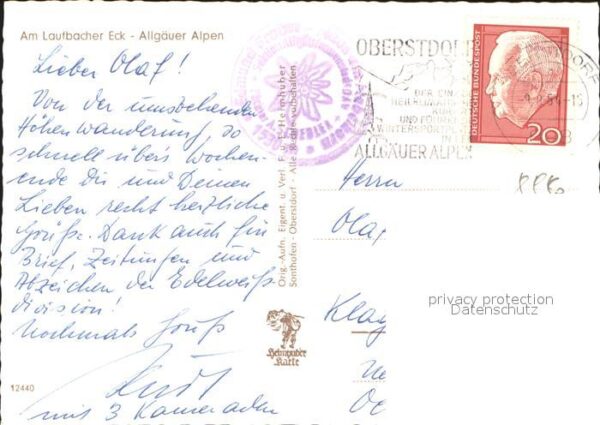 Am Laufbacher Eck - Allgäuer Alpen
Lieber Olaf!
Von der umstehenden
Höhenwanderung, so
schnell übers Wochen-
ende Dir und Deinen
Lieben recht herzliche
Grüße. Dank auch für
Brief, Zeitungen und
Abzeichen der Edelweiß-
division!
Nochmals Gruß
Rudi
mit 3 Kameraden
12440
Orig.-Aufn. Eigent. u. Verl. F. u. F. Heimhuber
Sonthofen - Oberstdorf - Alle Rechte vorbehalten
Heimhuber
Karte
OBERSTDORF
DER
HEILKLIMATISCHE
KUR
UND
WINTERSPORTPLATZ
IN DEN
ALLGÄUER ALPEN
DEUTSCHE BUNDESPOST
20
Herrn
Olaf
Klag
privacy protection
Datenschutz